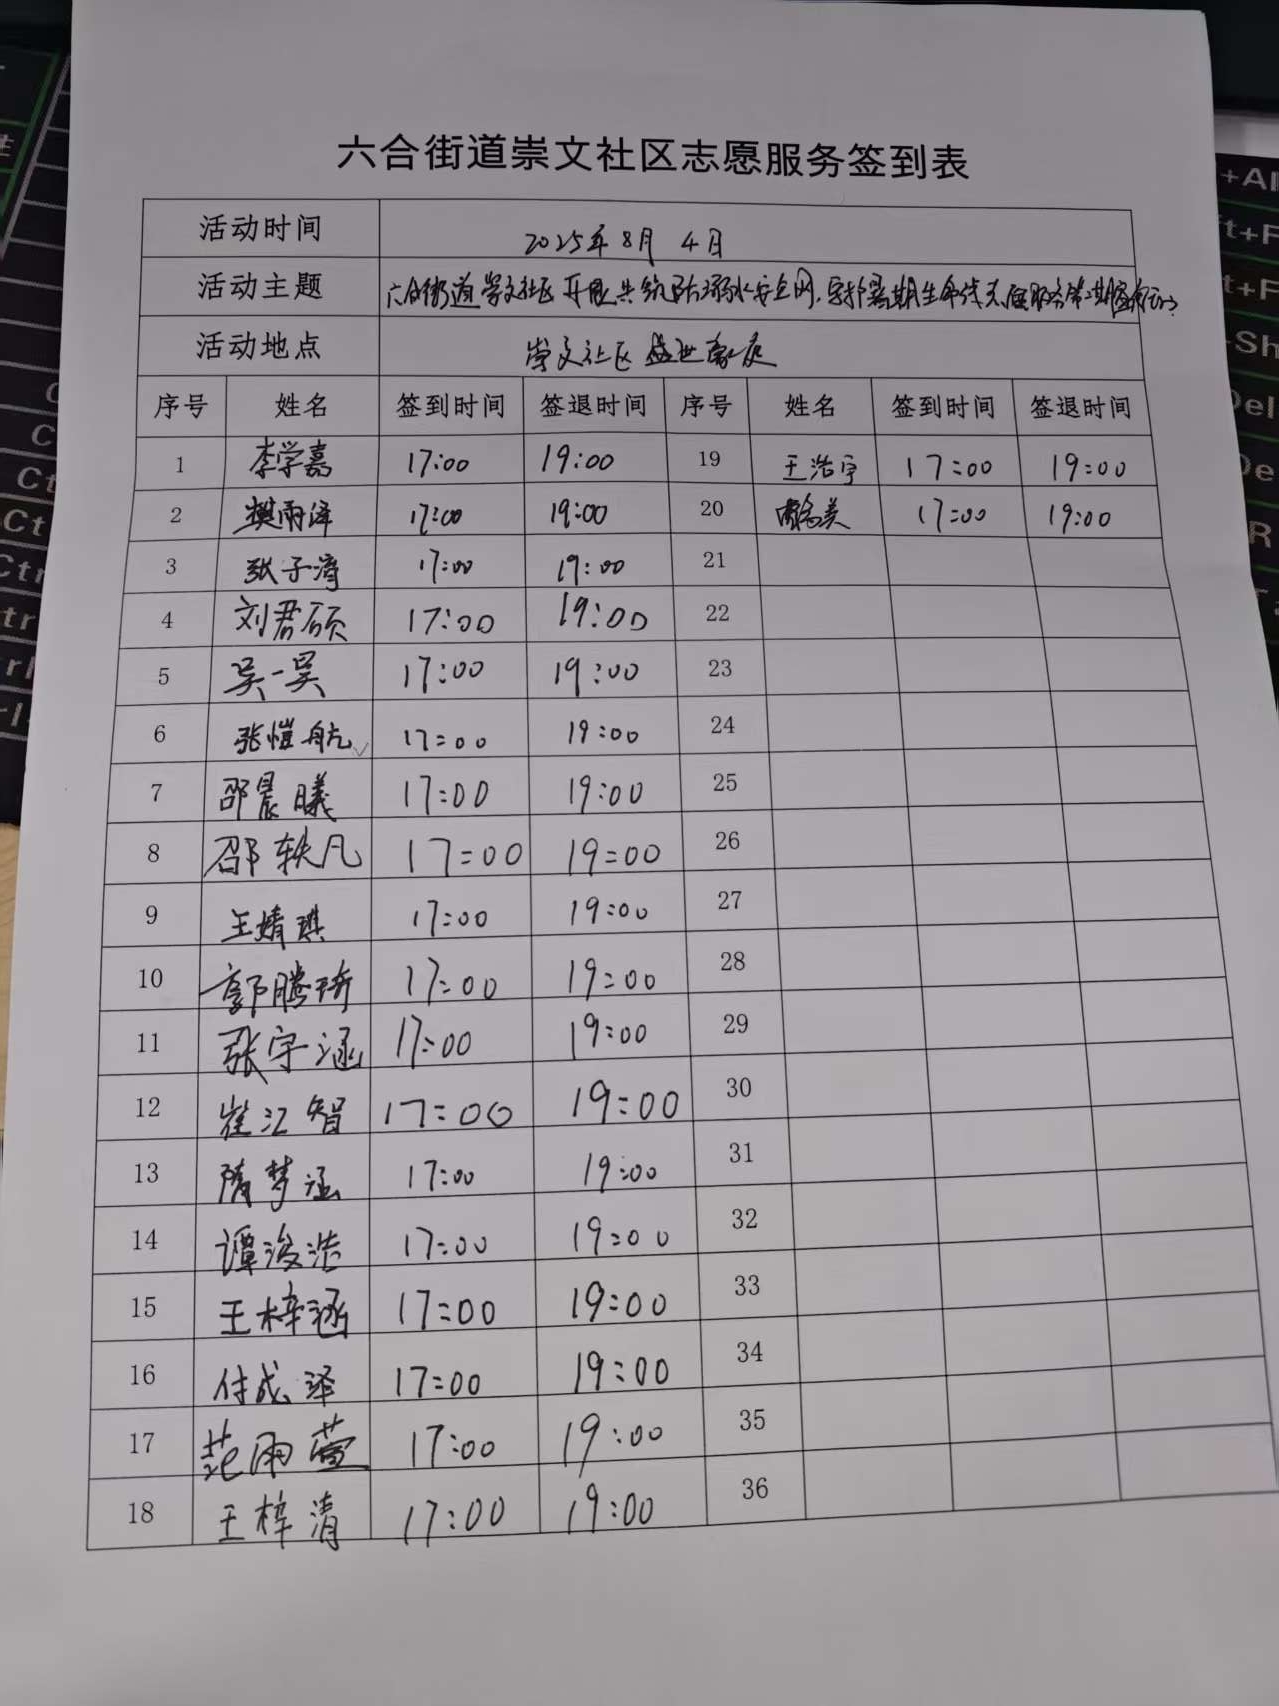 六合街道崇文社区志愿服务签到表
活动时间 2025年8月4日
活动主题 六合街道崇文社区开展共筑防溺水安全网,守护暑期生命线志愿服务第二期
活动地点 崇文社区盛世豪庭
序号 姓名 签到时间 签退时间 序号 姓名 签到时间 签退时间
1 李学嘉 17:00 19:00 19 王浩宇 17:00 19:00
2 樊雨泽 17:00 19:00 20 17:00 19:00
3 张子涛 17:00 19:00 21
4 刘君硕 17:00 19:00 22
5 吴一昊 17:00 19:00 23
6 张愷航 17:00 19:00 24
7 邵晨曦 17:00 19:00 25
8 邵轶凡 17:00 19:00 26
9 王婧琪 17:00 19:00 27
10 郭腾琦 17:00 19:00 28
11 张宇涵 17:00 19:00 29
12 崔江智 17:00 19:00 30
13 隋梦涵 17:00 19:00 31
14 谭浚浩 17:00 19:00 32
15 王梓涵 17:00 19:00 33
16 付成泽 17:00 19:00 34
17 范雨萱 17:00 19:00 35
18 王梓清 17:00 19:00 36